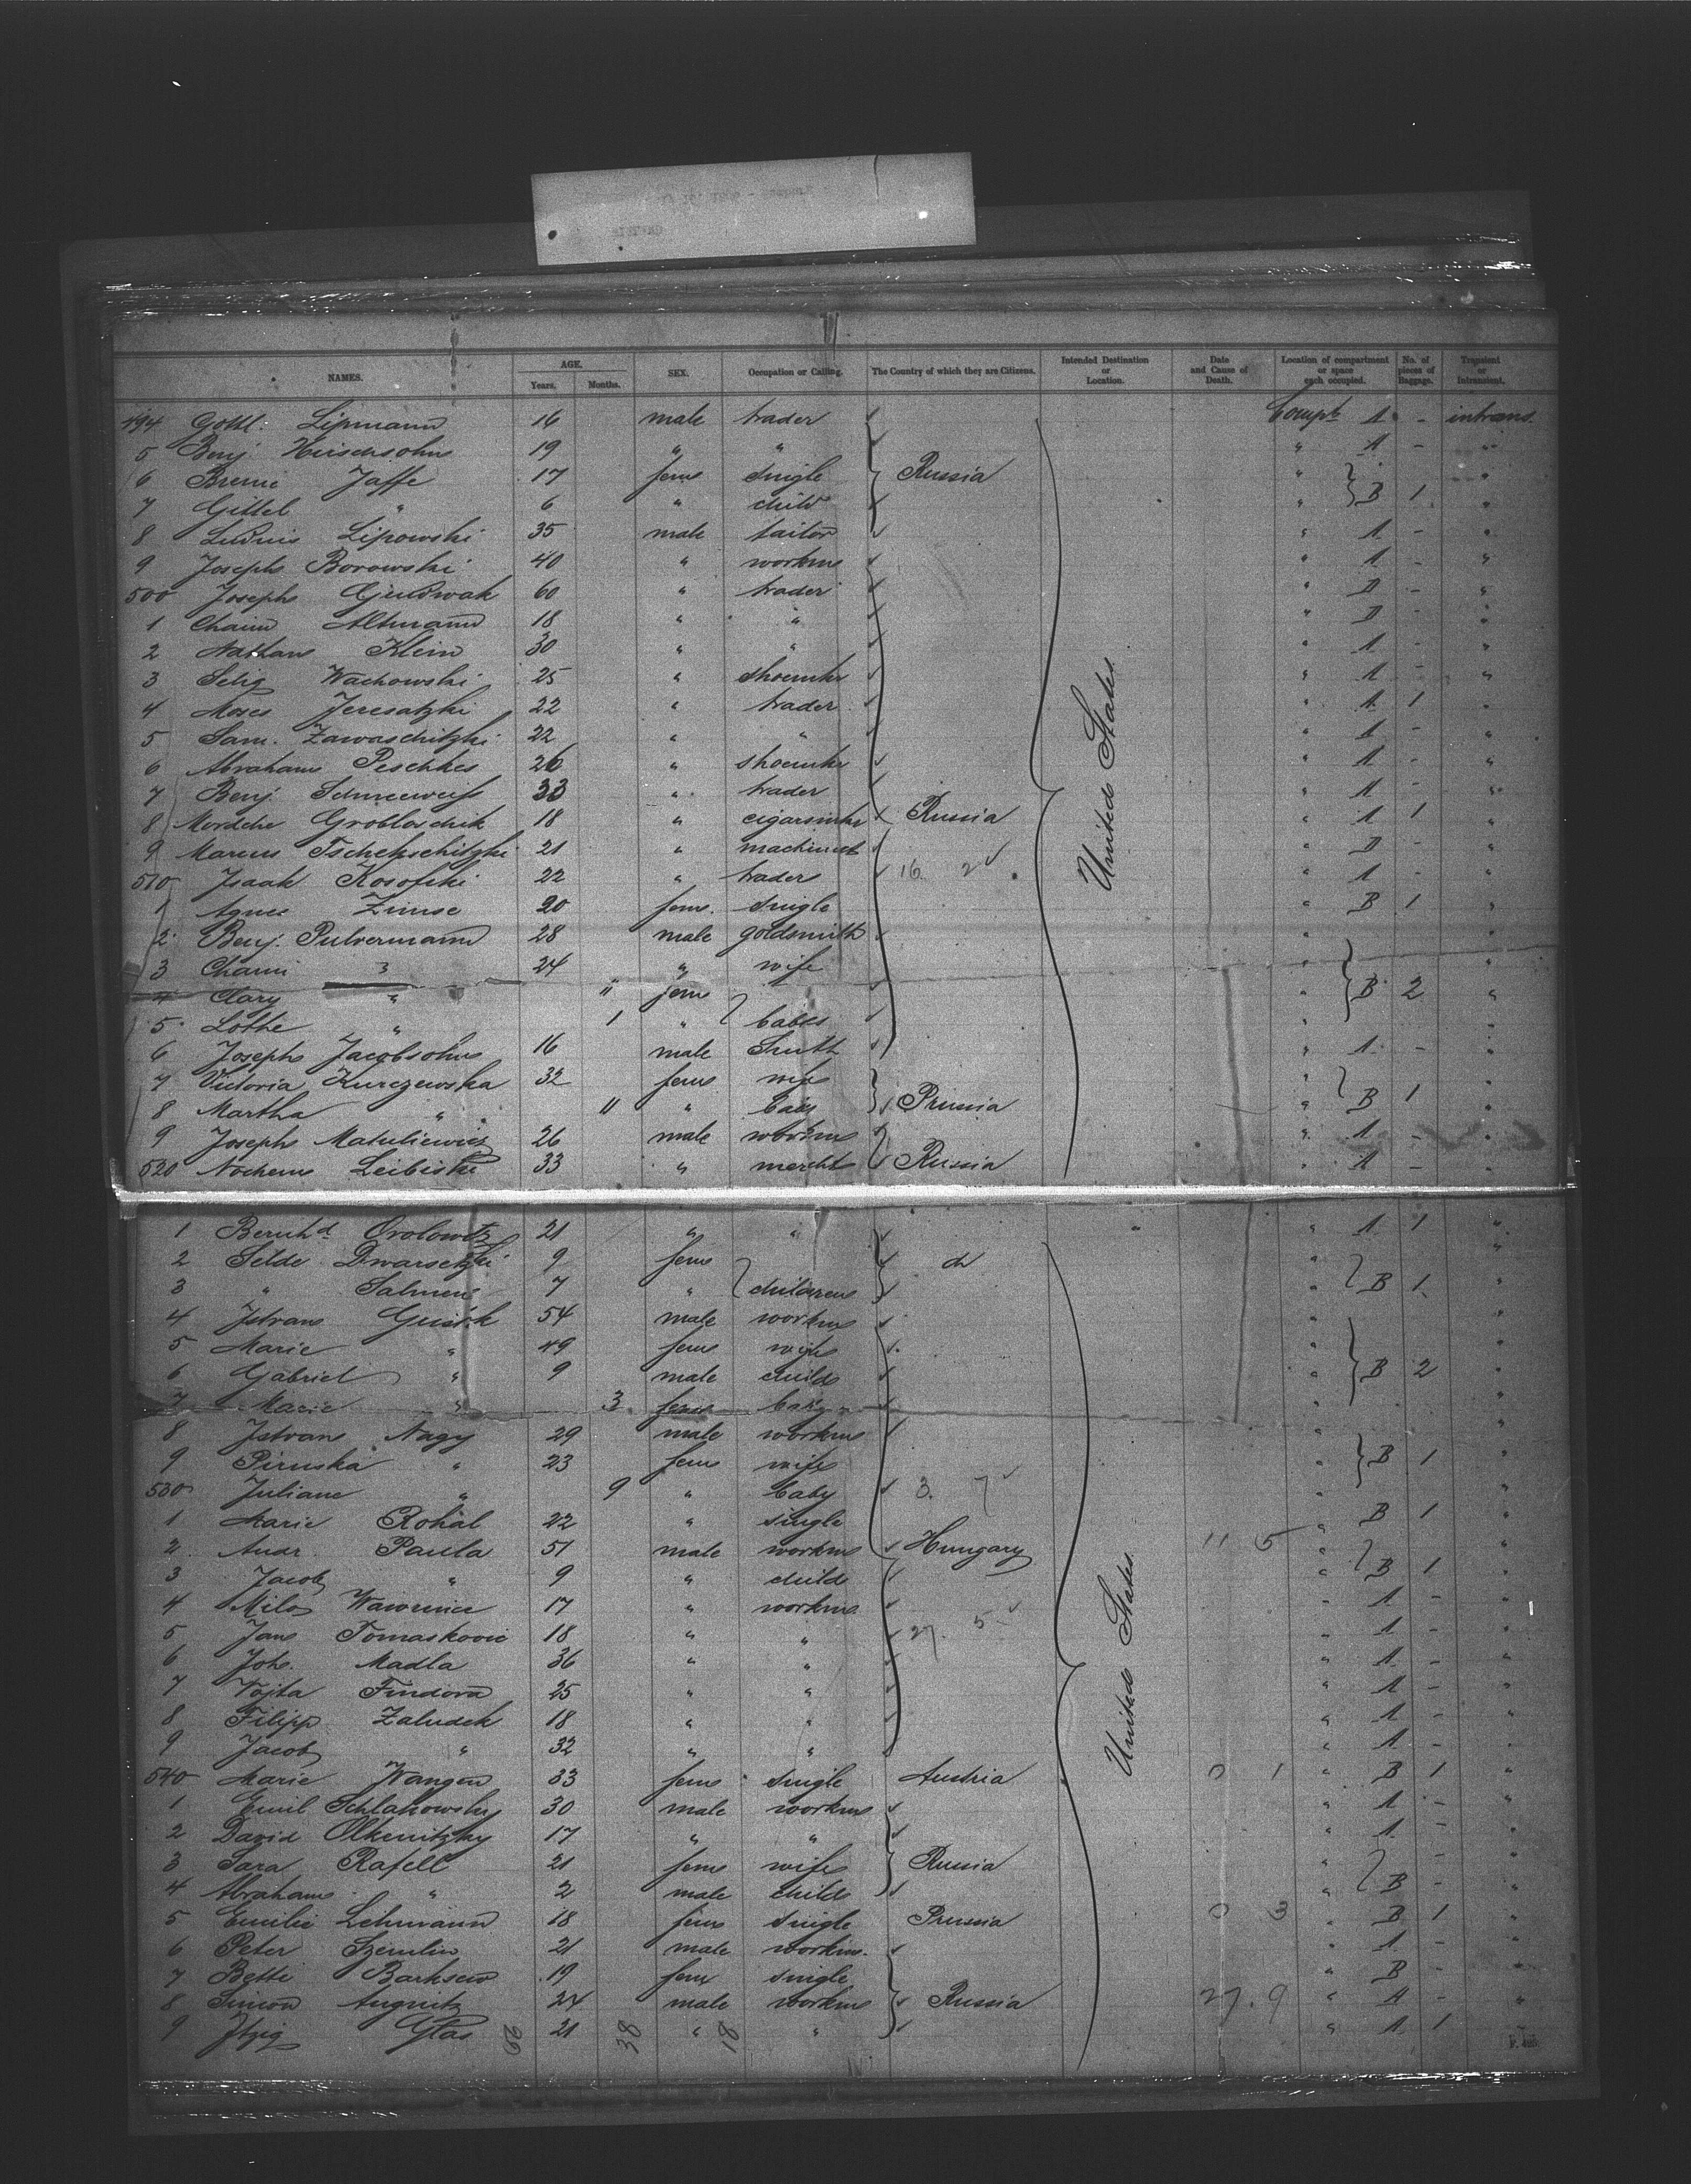 NAMES. AGE. Years. Months. SEX. Occupation or Calling. The Country of which they are Citizens. Intended Destination or Location. Date and Cause of Death. Location of compartment or space each occupied. No. of pieces of Baggage. Transient or Intransient.
494 Gottl. Lipmann 16 male trader Compt A - intrans.
5 Benj. Hirschsohn 19 " " " A - "
6 Breine Jaffe 17 fem single Russia " "
7 Gittel " 6 " child " B 1 "
8 Lipowski 35 male tailor " A - "
9 Joseph Borowski 40 " workm " A - "
500 Joseph 60 " trader " D - "
1 Chaim Altmann 18 " " " D - "
2 Nathan Klein 30 " " " A - "
3 Selig Wachowski 25 " shoemkr " A - "
4 Moses Jeresatzki 22 " trader " A 1 "
5 Sam. Zawaschitzki 22 " " " A - "
6 Abraham Peschkes 26 " shoemkr " A - "
7 Benj. Schneeweiss 33 " trader " A - "
8 Mordche Grobloschik 18 " cigarsmkr Russia " A 1 "
9 Marcus 21 " machinist " D - "
510 Isaak Kosofski 22 " trader 16. 2 United States " A - "
1 Agnes Zimse 20 fem. single " B 1 "
2 Benj. Pulvermann 28 male goldsmith " "
3 Chaim " 24 " wife " "
4 Clary " 11 fem " B 2 "
5 Lothe " 1 " babies " "
6 Joseph Jacobsohn 16 male Smith " A - "
7 Victoria Kurczewska 32 fem wife " "
8 Martha " 11 " baby Prussia " B 1 "
9 Joseph Matuliewicz 26 male workm " A - "
520 Nochem Leibiski 33 " mercht Russia " A - "
1 Bernhd. Orolowitz 21 " " " " A 1 "
2 Selde Dwarsetzki 9 fem do " "
3 " Salmen 7 " children " B 1 "
4 Istvan 54 male workm " "
5 Marie " 49 fem wife " "
6 Gabriel " 9 male child " B 2 "
7 Marie " 3 fem baby " "
8 Istvan Nagy 29 male workm " "
9 Piruska " 23 fem wife B 1 "
530 Juliane " 9 " baby 3. 7 " "
1 Marie Rohal 22 " single " B 1 "
2 Andr. Paula 51 male workm Hungary 11 5 " "
3 Jacob " 9 " child " B 1 "
4 Milo Wawrince 17 " workm " A - "
5 Jan Tomaskovic 18 " " 27. 5 " A - "
6 Joh. Madla 36 " " " A - "
7 Vojta Findora 25 " " United States " A - "
8 Filipp Zaludek 18 " " " A - "
9 Jacob " 32 " " " A - "
540 Marie Wangen 33 fem single Austria 0 1 " B 1 "
1 Emil Schlakowsky 30 male workm " A - "
2 David Olkenitzky 17 " " " A - "
3 Sara Rafell 21 fem wife Russia " - "
4 Abraham " 2 male child " B - "
5 Emilie Lehmann 18 fem single Prussia 0 3 " B 1 "
6 Peter Szemlin 21 male workm. " A - "
7 Betti Barksew 19 fem single " B - "
8 Simon Augnitz 24 male workm Russia 27. 9 " A - "
9 Itzig Glas 21 " " " A 1 "
38 18